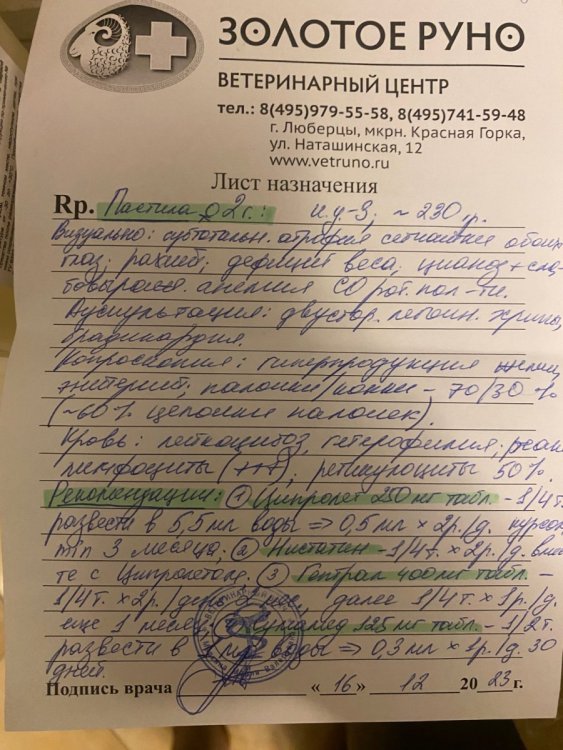 ЗОЛОТОЕ РУНО
ВЕТЕРИНАРНЫЙ ЦЕНТР
тел.: 8(495)979-55-58, 8(495)741-59-48
г. Люберцы, мкрн. Красная Горка,
ул. Наташинская, 12
www.vetruno.ru
Лист назначения
Rp. Пастила 2г.: и.у-3, ~ 230 гр.
Визуально: субтотальн. атрофия сетчатки обоих
глаз; рахит; дефицит веса; цианоз + сла-
бовыраж. анемия СО рот. пол-ти.
Аускультация: двустор. легочн. хрипы,
брадикардия.
Копроскопия: гиперпродукция
палочки/кокки - 70/30 %
(~60% цепочки палочек).
Кровь: лейкоцитоз, гетерофилия; реакт.
лимфоциты (+++); ретикулоциты 50%.
Рекомендации: ① Ципролет 250 мг табл. - 1/4 т.
развести в 5,5 мл воды => 0,5 мл × 2р./д. курсом
min 3 месяца; ② Нистатин - 1/4 т. × 2р./д. вмес-
те с Ципролетом. ③ Гептрал 400 мг табл. -
1/4 т. × 2р./день мес, далее 1/4 т. × 1р./д.
еще 1 месяц. 125 мг табл. - 1/2 т.
развести в воды => 0,3 мл × 1р./д. 30
дней.
Подпись врача « 16 » 12 2023 г.